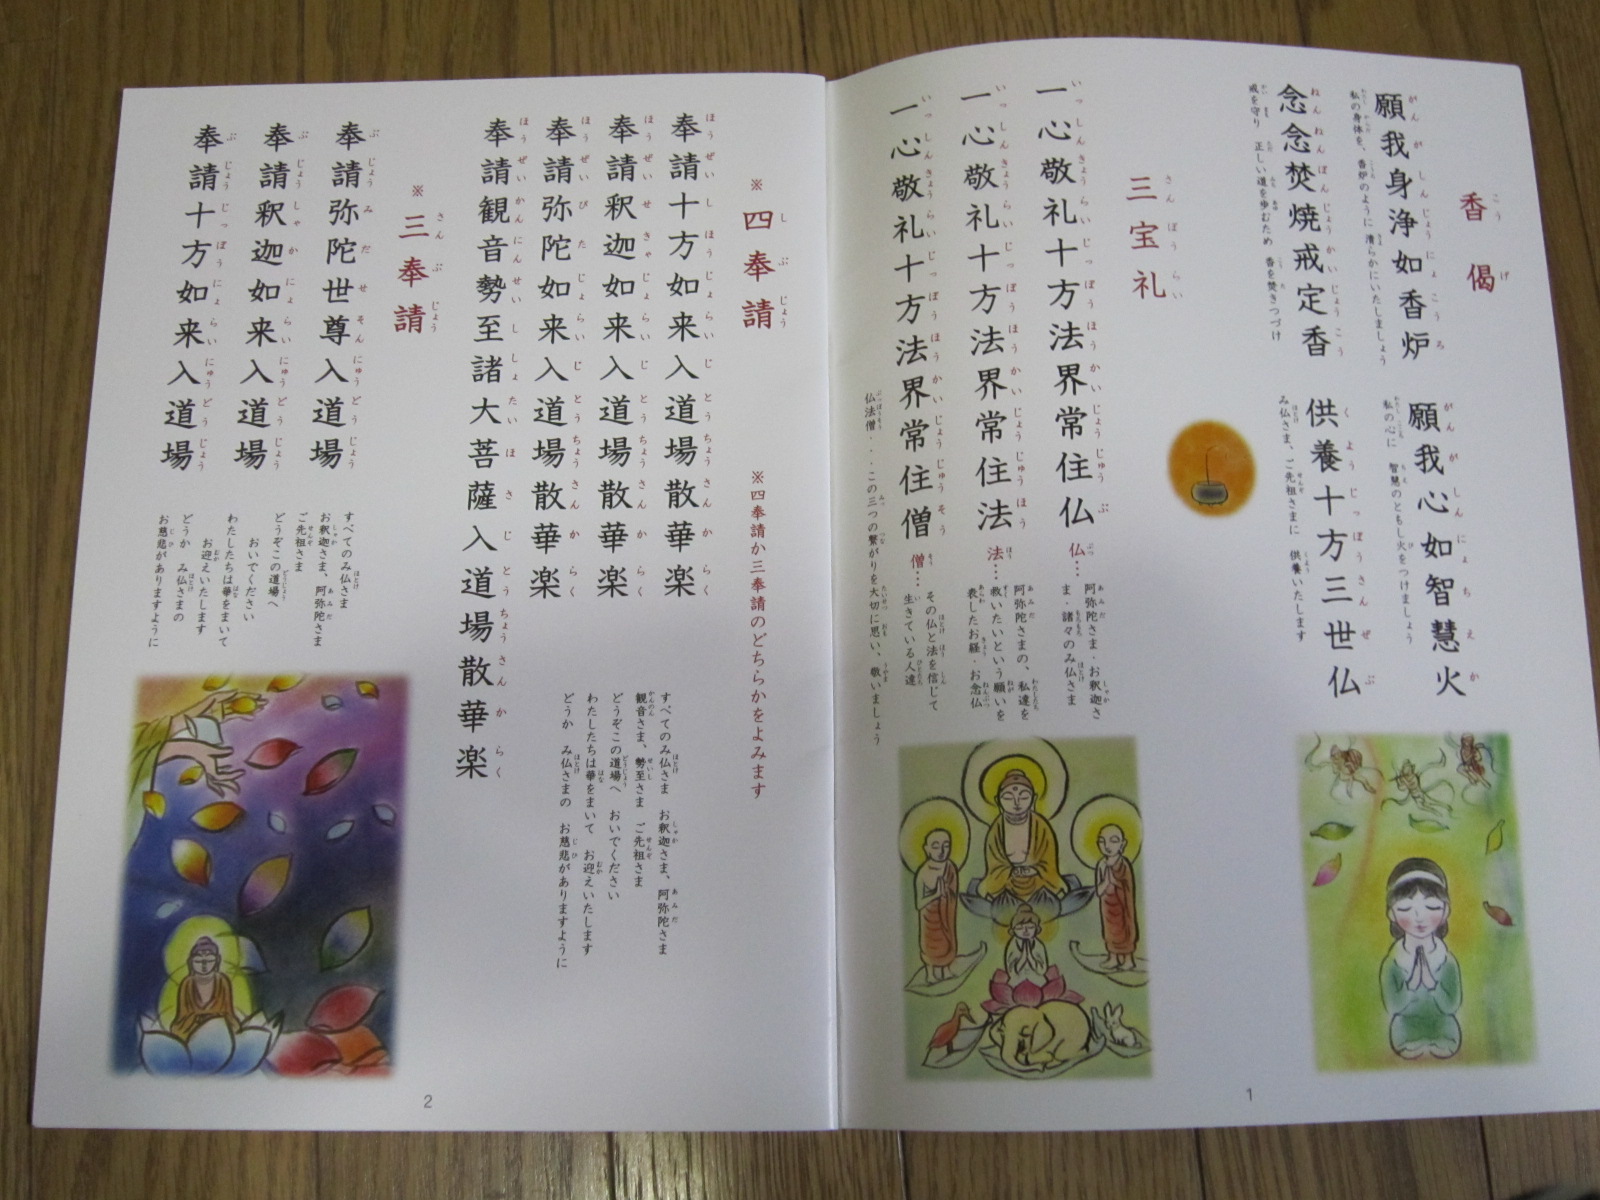 香偈
願我身浄如香炉
私の身体を、香炉のように 清らかにいたしましょう
願我心如智慧火
私の心に 智慧のともし火をつけましょう
念念焚焼戒定香
戒を守り 正しい道を歩むため 香を焚きつづけ
供養十方三世仏
み仏さま、ご先祖さまに 供養いたします
三宝礼
一心敬礼十方法界常住仏
仏…阿弥陀さま・お釈迦さま・諸々のみ仏さま
一心敬礼十方法界常住法
法…阿弥陀さまの、私達を救いたいという願いを表したお経・お念仏
一心敬礼十方法界常住僧
僧…その仏と法を信じて生きている人達
仏法僧・・・この三つの繋がりを大切に思い、敬いましょう
1
※四奉請
※四奉請か三奉請のどちらかをよみます
奉請十方如来入道場散華楽
奉請釈迦如来入道場散華楽
奉請弥陀如来入道場散華楽
奉請観音勢至諸大菩薩入道場散華楽
すべてのみ仏さま お釈迦さま、阿弥陀さま
観音さま、勢至さま ご先祖さま
どうぞこの道場へ おいでください
わたしたちは華をまいて お迎えいたします
どうか み仏さまの お慈悲がありますように
※三奉請
奉請弥陀世尊入道場
奉請釈迦如来入道場
奉請十方如来入道場
すべてのみ仏さま
お釈迦さま、阿弥陀さま
ご先祖さま
どうぞこの道場へ
おいでください
わたしたちは華をまいて
お迎えいたします
どうか み仏さまの
お慈悲がありますように
2